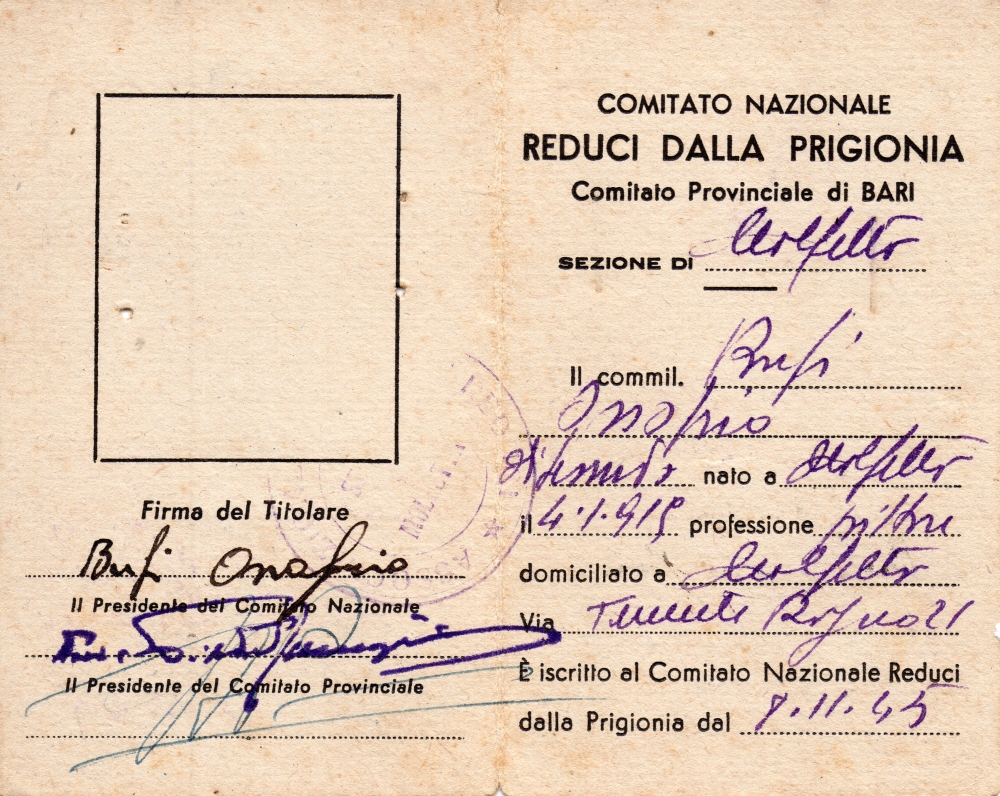 Firma del Titolare
Bufi Onofrio
Il Presidente del Comitato Nazionale
Il Presidente del Comitato Provinciale
COMITATO NAZIONALE
REDUCI DALLA PRIGIONIA
Comitato Provinciale di BARI
SEZIONE DI Molfetta
Il commil. Bufi
Onofrio
nato a Molfetta
il 4.1.915 professione pittore
domiciliato a Molfetta
Via Tenente Ragno 21
È iscritto al Comitato Nazionale Reduci
dalla Prigionia dal 7.11.45